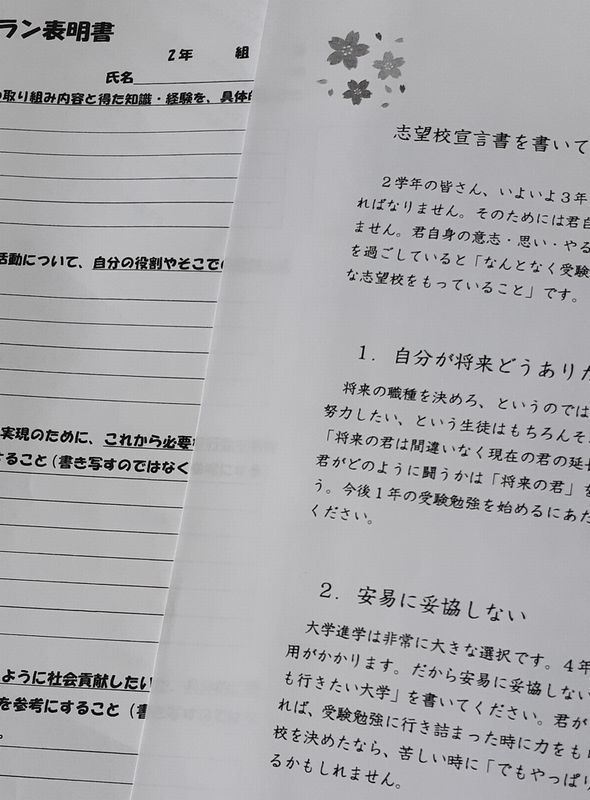 ラン表明書
2年　組
氏名
取り組み内容と得た知識・経験を、具体的
活動について、自分の役割やそこで
実現のために、これから必要
すること（書き写すのではなく
ように社会貢献したい
を参考にすること（書
。
志望校宣言書を書いて
2学年の皆さん、いよいよ3年
ればなりません。そのためには君自
ません。君自身の意志・思い・やる
を過ごしていると「なんとなく受験
な志望校をもっていること」です。
1．自分が将来どうありた
将来の職種を決めろ、というのでは
努力したい、という生徒はもちろんそ
「将来の君は間違いなく現在の君の延長
君がどのように闘うかは「将来の君」を
う。今後1年の受験勉強を始めるにあた
ください。
2．安易に妥協しない
大学進学は非常に大きな選択です。4年
用がかかります。だから安易に妥協しない
も行きたい大学」を書いてください。君が
れば、受験勉強に行き詰まった時に力をも
校を決めたなら、苦しい時に「でもやっぱり
るかもしれません。